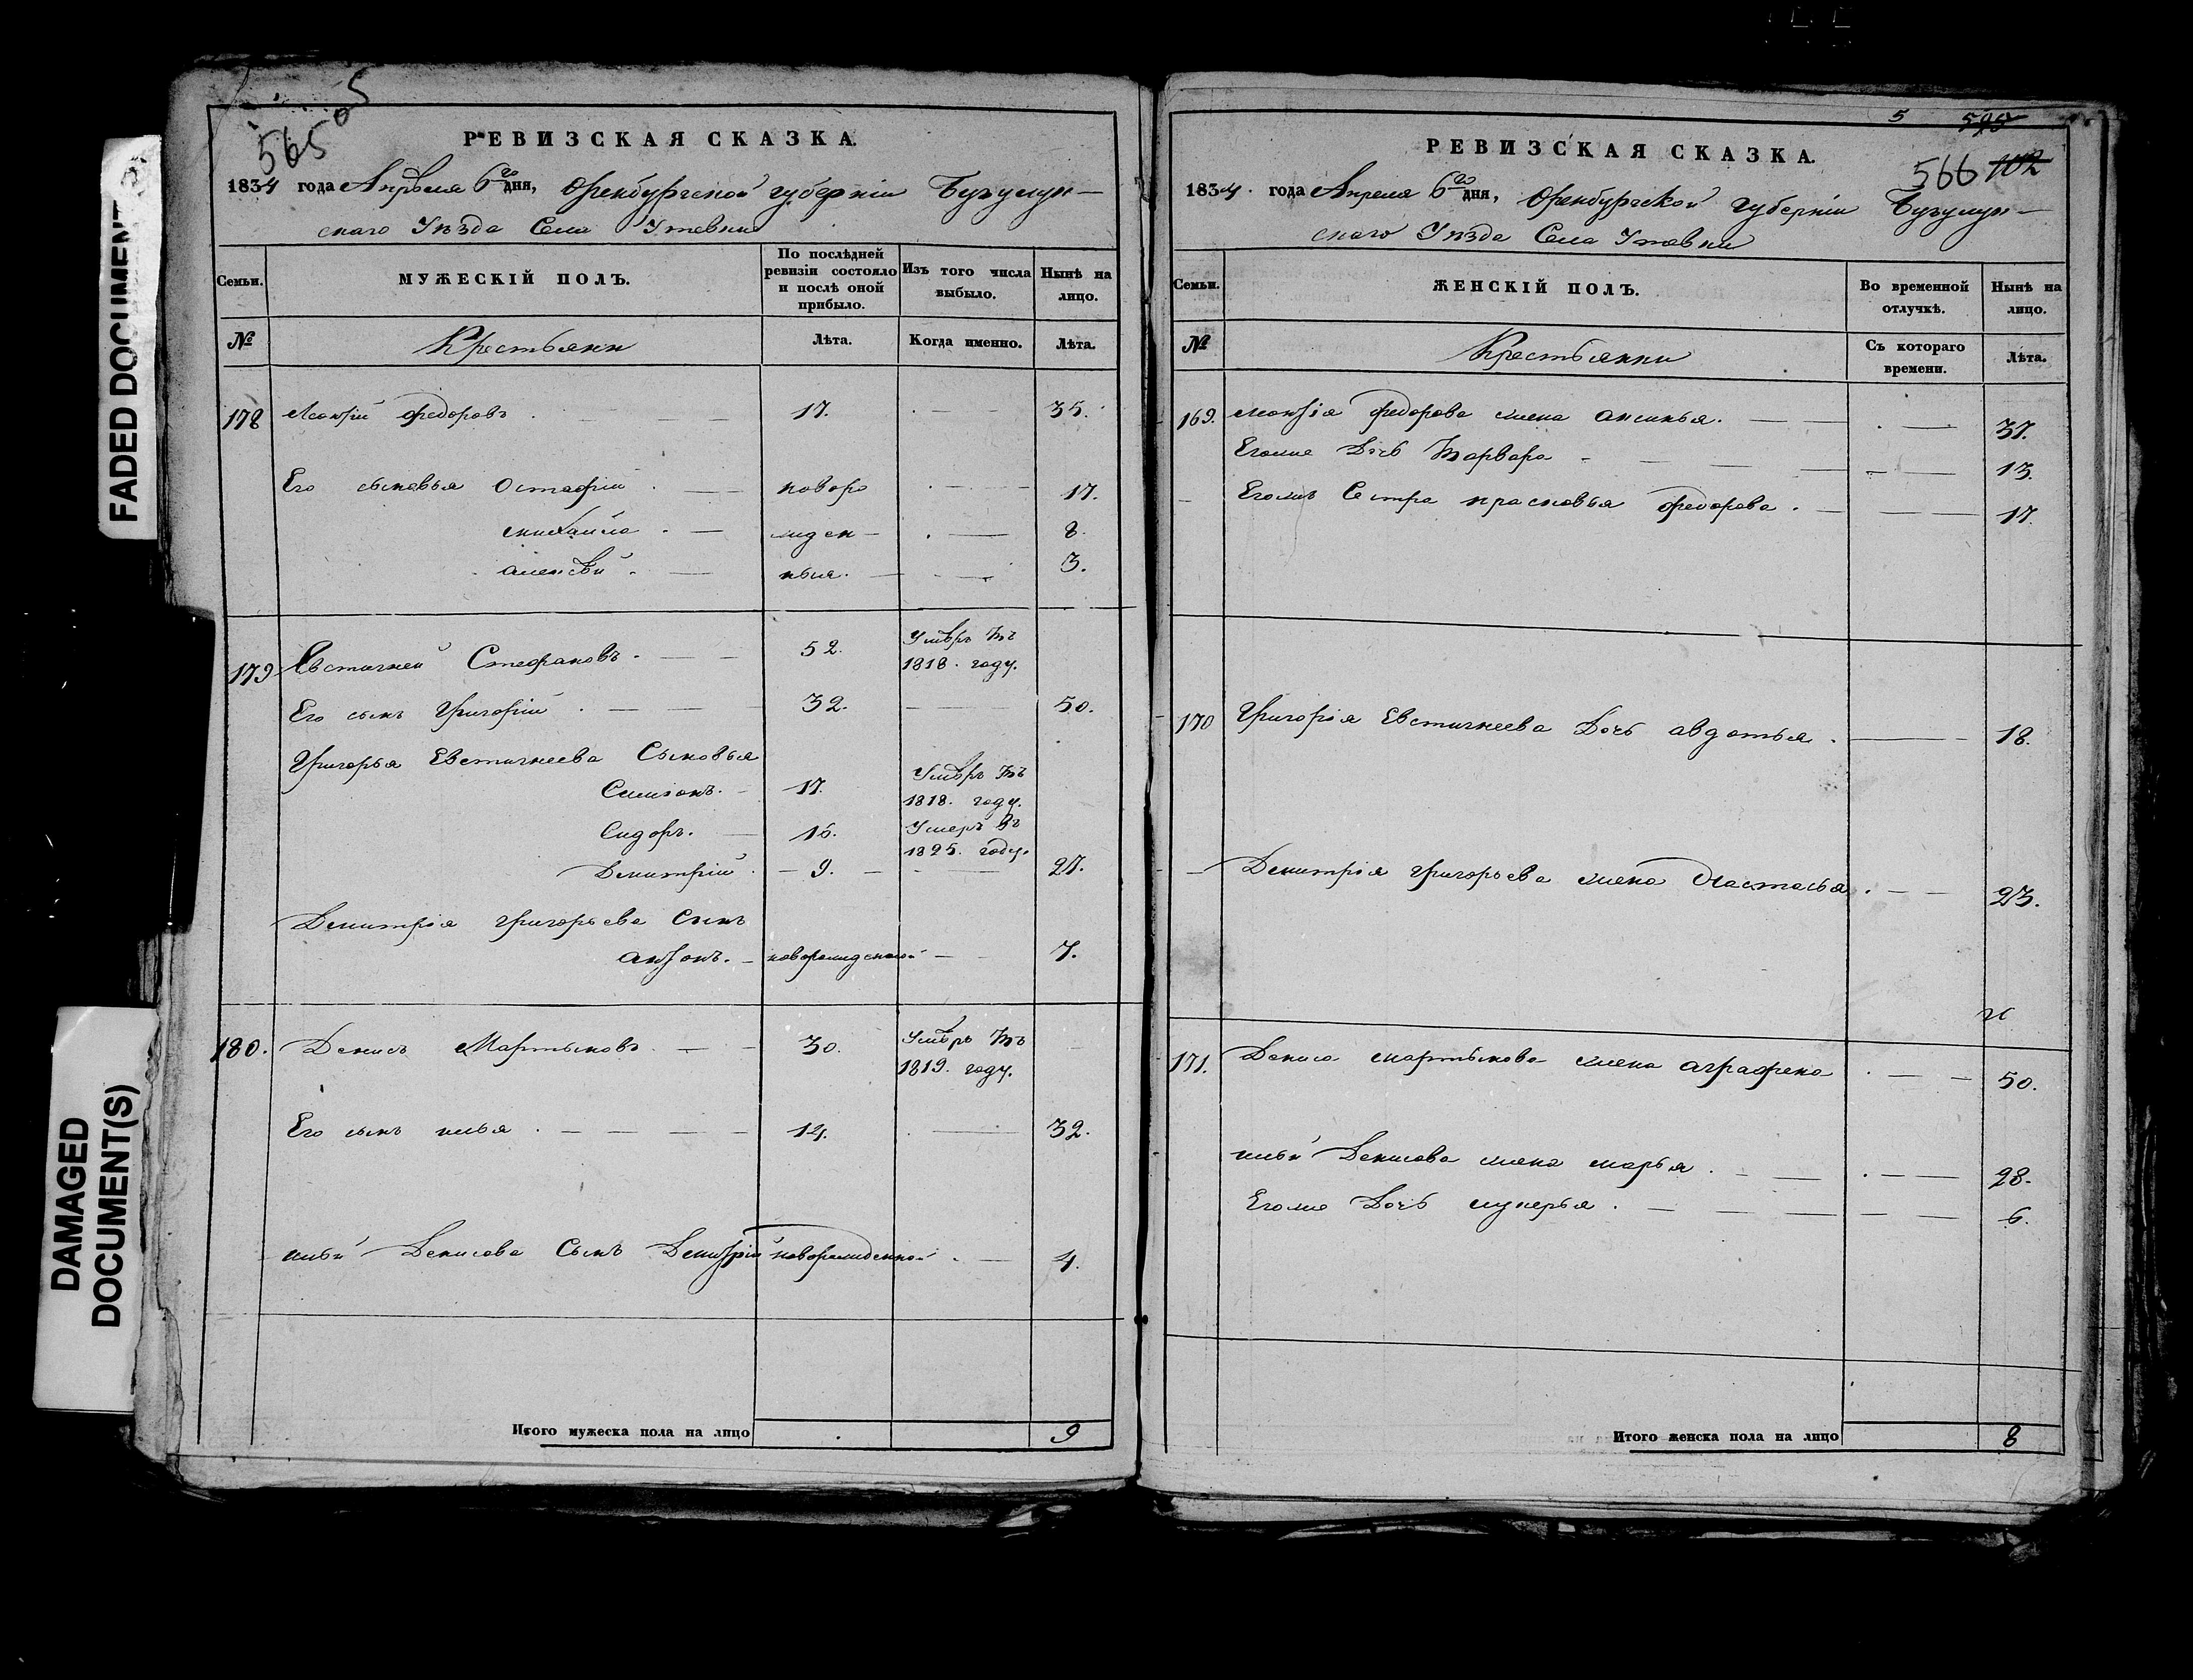 FADED DOCUMENT
DAMAGED
DOCUMENT(S)
565
РЕВИЗСКАЯ СКАЗКА.
1834 года Апреля 6го дня, Оренбургской губерніи Бугулмин—
скаго Уѣзда Села Утевки
Семьи.
МУЖЕСКІЙ ПОЛЪ.
По послѣдней
ревизіи состояло
и послѣ оной
прибыло.
Изъ того числа
выбыло.
Нынѣ на
лицо.
№
Крестьяни
Лѣта.
Когда именно.
Лѣта.
178 Федоровъ 17. 35.
Его сыновья Остафій новоро 17.
михайла жден— 8.
алексѣй ныя. 3.
179 Евстигней Стефановъ. 52. Умѣръ Въ
1818. году.
Его сынъ Григорій 32. 50.
Григорья Евстигнеева Сыновья
Симіонъ. 17. Умѣръ Въ
1818. году.
Сидоръ. 16. Умеръ Въ
1825. году.
Демитрій 9. 27.
Демитрія григорьева Сынъ
антонъ. новорожденной 7.
180. Денисъ Мартыновъ 30. Умѣръ Въ
1819. году.
Его сынъ илья 14. 32.
ильи Денисова Сынъ Демитрій новорожденной 4.
Итого мужеска пола на лицо 9
5 595
566 102
РЕВИЗСКАЯ СКАЗКА.
1834. года Апреля 6го дня, Оренбургской губерніи Бугулмин—
скаго Уѣзда Села Утевки
Семьи.
ЖЕНСКІЙ ПОЛЪ.
Во временной
отлучкѣ.
Нынѣ на
лицо.
№
Крестьянки
Съ котораго
времени.
Лѣта.
169. федорова жена аксинья. 37.
Егоже Дочь Варвара 13.
Егожъ Сестра прасковья федорова. 17.
170 Григорія Евстигнеева Дочь авдотья. 18.
Демитрія григорьева жена Настасья. 23.
171. Дениса мартынова жена аграфена 50.
ильи Денисова жена марья. 28.
Егоже Дочь лукерья. 6.
Итого женска пола на лицо 8